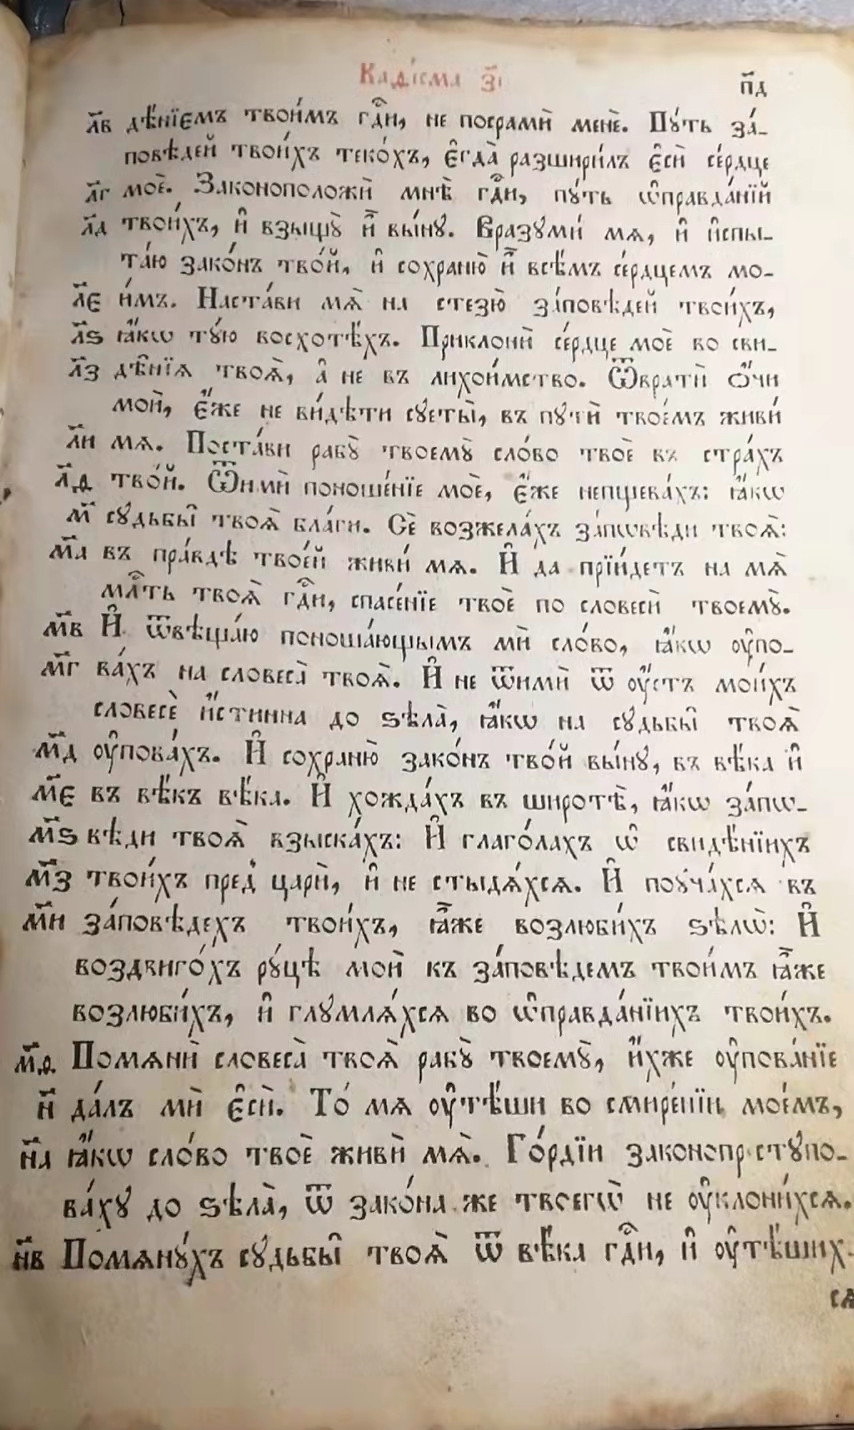 Каѳі́сма з҃і
п҃д
л҃в дѣ́нїємъ твои́мъ гдⷭ҇и, не посрамѝ менѐ. Пꙋ́ть за́-
повѣдей твои́хъ теко́хъ, є҆гда̀ разшири́лъ є҆сѝ се́рдце
л҃г моѐ. Законоположѝ мнѣ̀ гдⷭ҇и, пꙋ́ть ѡ҆правда́нїй
л҃д твои́хъ, и҆ взыщꙋ̀ и҆̀ вы́нꙋ. Вразꙋми́ мѧ, и҆ и҆спы-
та́ю зако́нъ тво́й, и҆ сохраню̀ и҆̀ всѣ́мъ се́рдцемъ мо-
л҃є и́мъ. Наста́ви мѧ̀ на стезю̀ за́повѣдей твои́хъ,
л҃ѕ ꙗ҆́кѡ тꙋ́ю восхотѣ́хъ. Приклонѝ се́рдце моѐ во сви-
л҃з дѣ́нїѧ твоѧ̀, а҆ не въ лихои́мство. Ѿвратѝ ѻ҆́чи
моѝ, є҆́же не ви́дѣти сꙋеты̀, въ пꙋтѝ твое́мъ живи́
л҃и мѧ. Поста́ви рабꙋ̀ твоемꙋ̀ сло́во твоѐ въ стра́хъ
л҃ѳ тво́й. Ѿимѝ поноше́нїе моѐ, є҆́же непщева́хъ: ꙗ҆́кѡ
м҃ сꙋдьбы̑ твоѧ̀ бла́ги. Сѐ возжела́хъ за́пѡвѣди твоѧ̀:
м҃а въ пра́вдѣ твое́й живи́ мѧ. И҆ да прїи́детъ на мѧ̀
млⷭ҇ть твоѧ̀ гдⷭ҇и, спасе́нїе твоѐ по словесѝ твоемꙋ̀.
м҃в И҆ ѿвѣща́ю поноша́ющымъ мѝ сло́во, ꙗ҆́кѡ ᲂу҆по-
м҃г ва́хъ на словеса̀ твоѧ̀. И҆ не ѿимѝ ѿ ᲂу҆́стъ мои́хъ
словесѐ и҆́стинна до ѕѣла̀, ꙗ҆́кѡ на сꙋдьбы̑ твоѧ̀
м҃д ᲂу҆пова́хъ. И҆ сохраню̀ зако́нъ тво́й вы́нꙋ, въ вѣ́ка и҆
м҃є въ вѣ́къ вѣ́ка. И҆ хожда́хъ въ широтѣ̀, ꙗ҆́кѡ за́пѡ-
м҃ѕ вѣди твоѧ̀ взыска́хъ: И҆ глаго́лахъ ѡ҆ свидѣ́нїихъ
м҃з твои́хъ пред̾ царѝ, и҆ не стыдѧ́хсѧ. И҆ поꙋча́хсѧ въ
м҃и за́повѣдехъ твои́хъ, ꙗ҆̀же возлюби́хъ ѕѣлѡ̀: И҆
воздвиго́хъ рꙋ́цѣ моѝ къ за́повѣдемъ твои́мъ ꙗ҆̀же
возлюби́хъ, и҆ глꙋмлѧ́хсѧ во ѡ҆правда́нїихъ твои́хъ.
м҃ѳ Помѧнѝ словеса̀ твоѧ̀ рабꙋ̀ твоемꙋ̀, и҆́хже ᲂу҆пова́нїе
н҃ да́лъ мѝ є҆сѝ. То́ мѧ ᲂу҆тѣ́ши во смире́нїи мое́мъ,
н҃а ꙗ҆́кѡ сло́во твоѐ живѝ мѧ̀. Го́рдїи законопрестꙋпо-
ва́хꙋ до ѕѣла̀, ѿ зако́на же твоегѡ̀ не ᲂу҆клони́хсѧ.
н҃в Помѧнꙋ́хъ сꙋдьбы̑ твоѧ̀ ѿ вѣ́ка гдⷭ҇и, и҆ ᲂу҆тѣ́ших-
сѧ